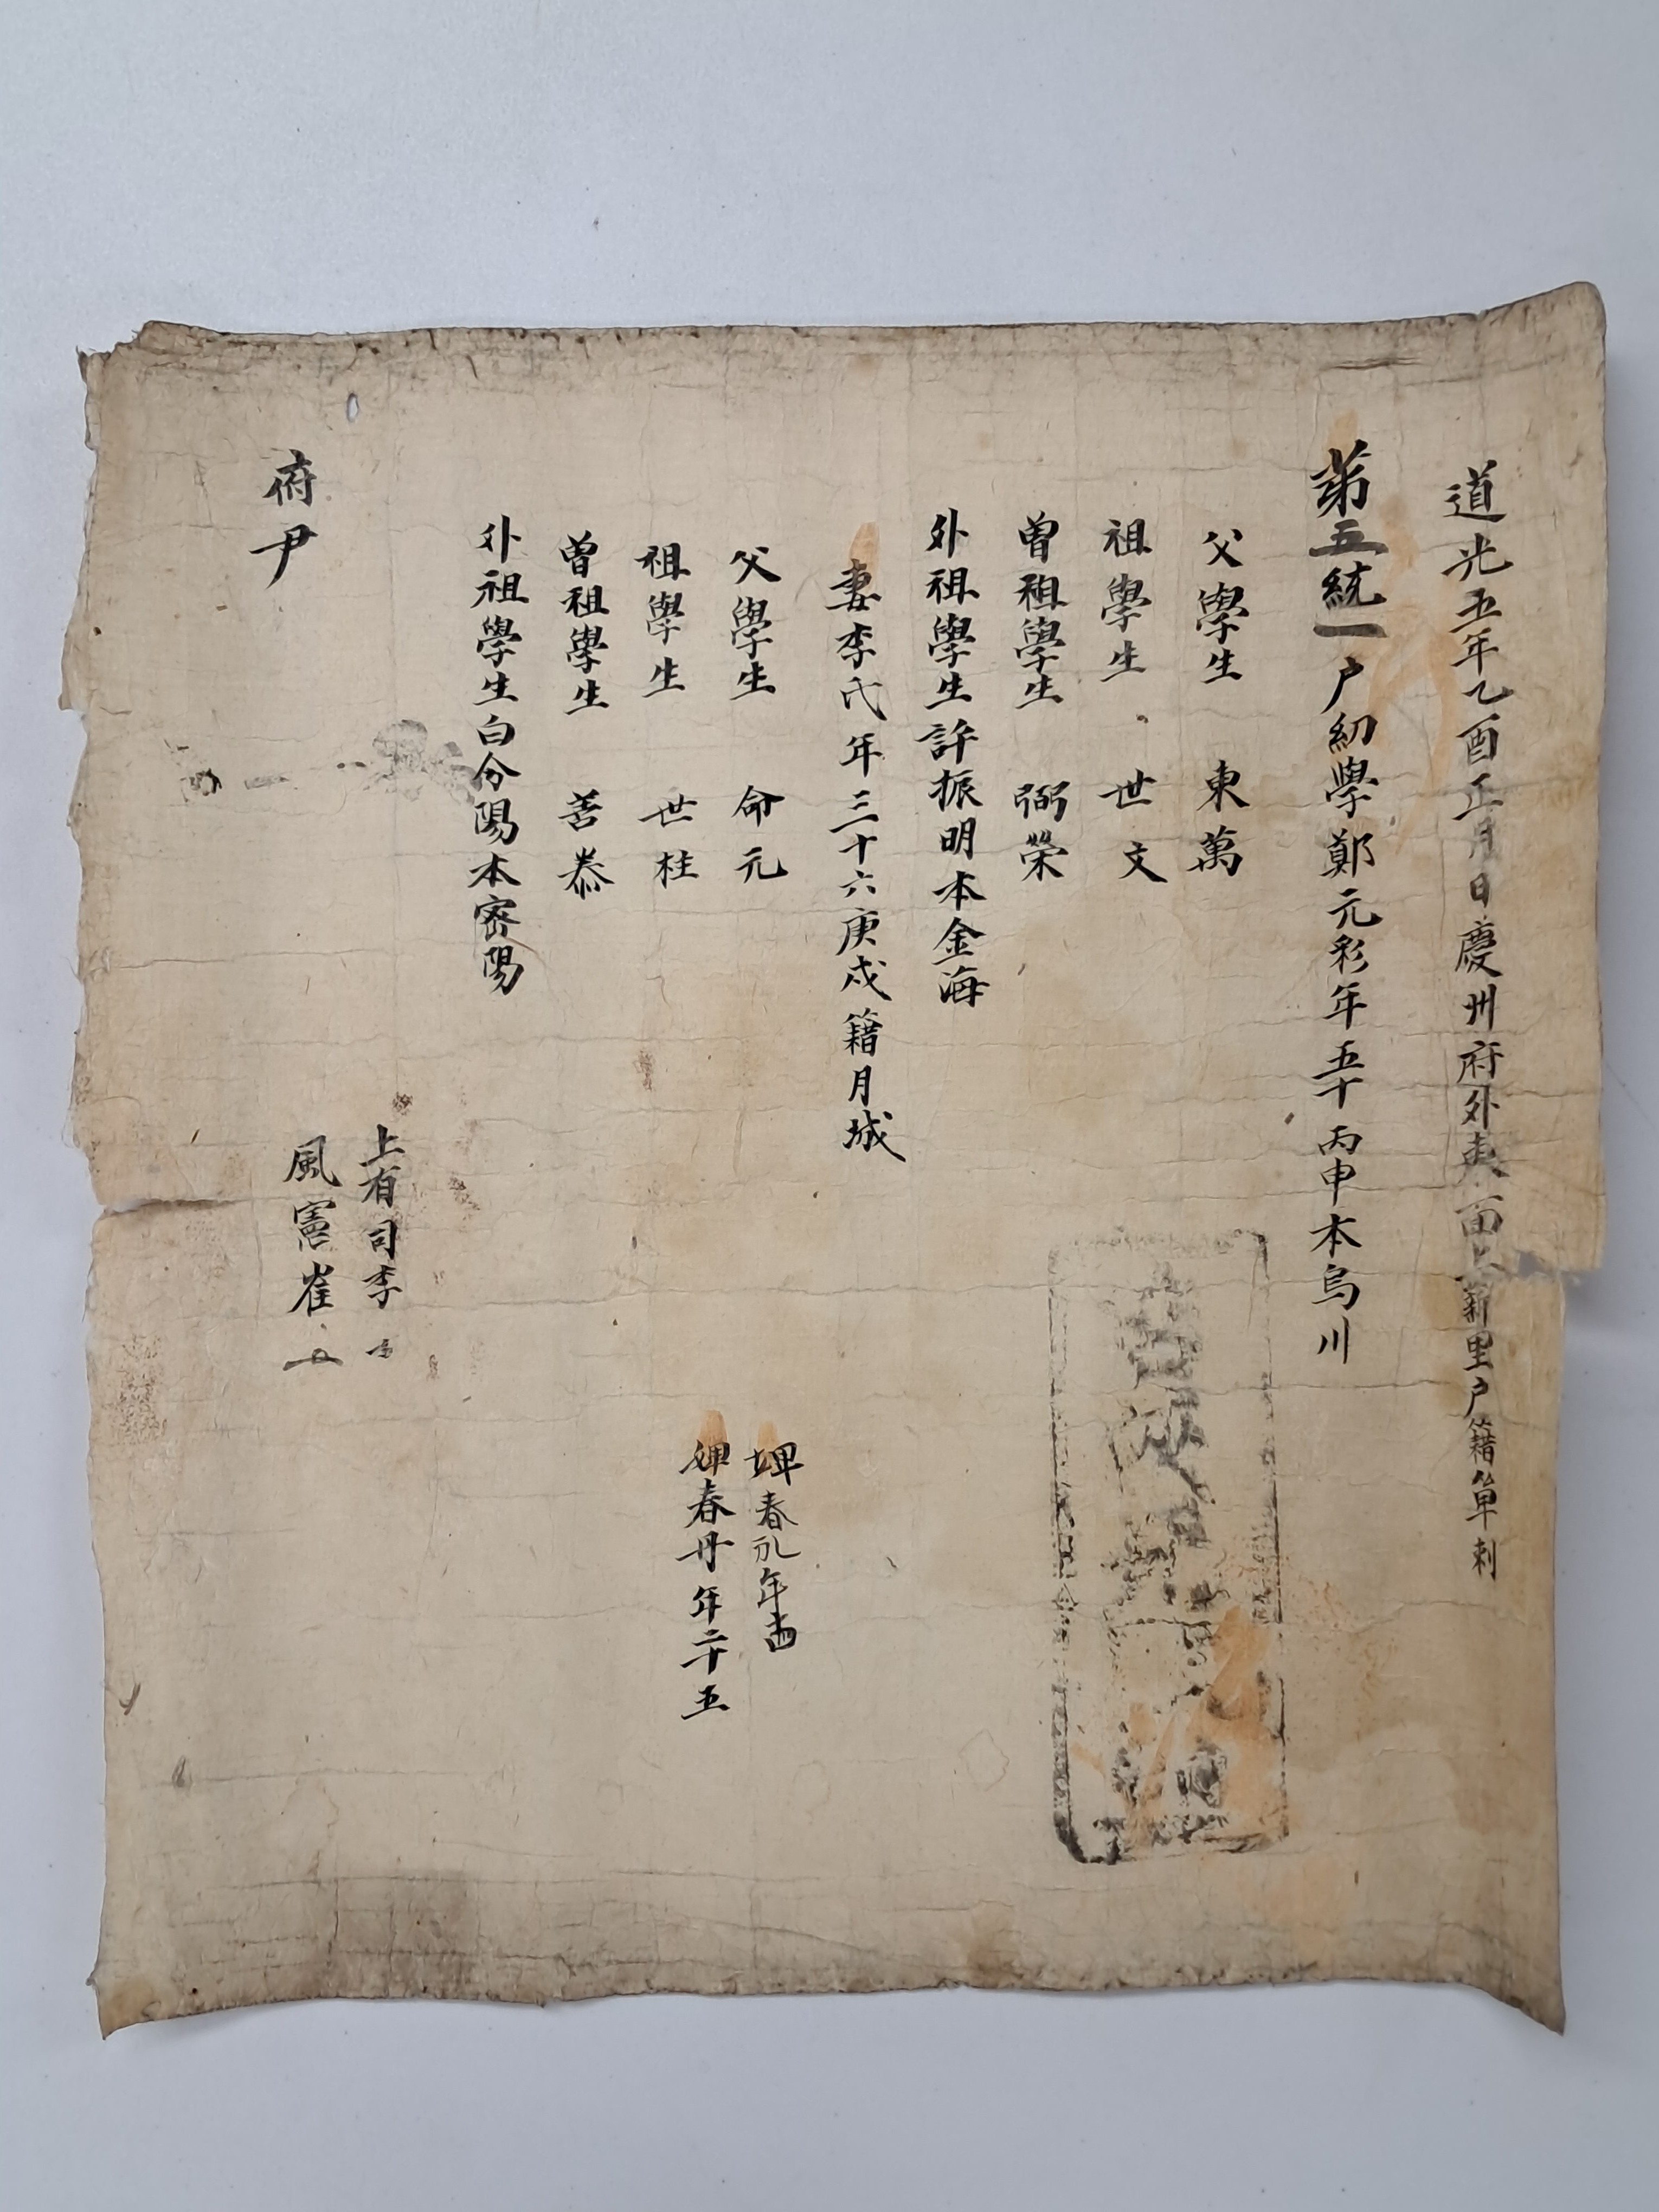 道光五年乙酉正月日慶州府外東面上薪里户籍单刺
第五統一户幼學鄭元彩年五十丙申本烏川
父學生東萬
祖學生世文
曾祖學生弼榮
外祖學生許振明本金海
妻李氏年三十六庚戌籍月城
父學生命元
祖學生世柱
曾祖學生善恭
外祖學生白令陽本密陽
婢春礼年
婢春丹年二十五
上有司李
風憲崔
府尹